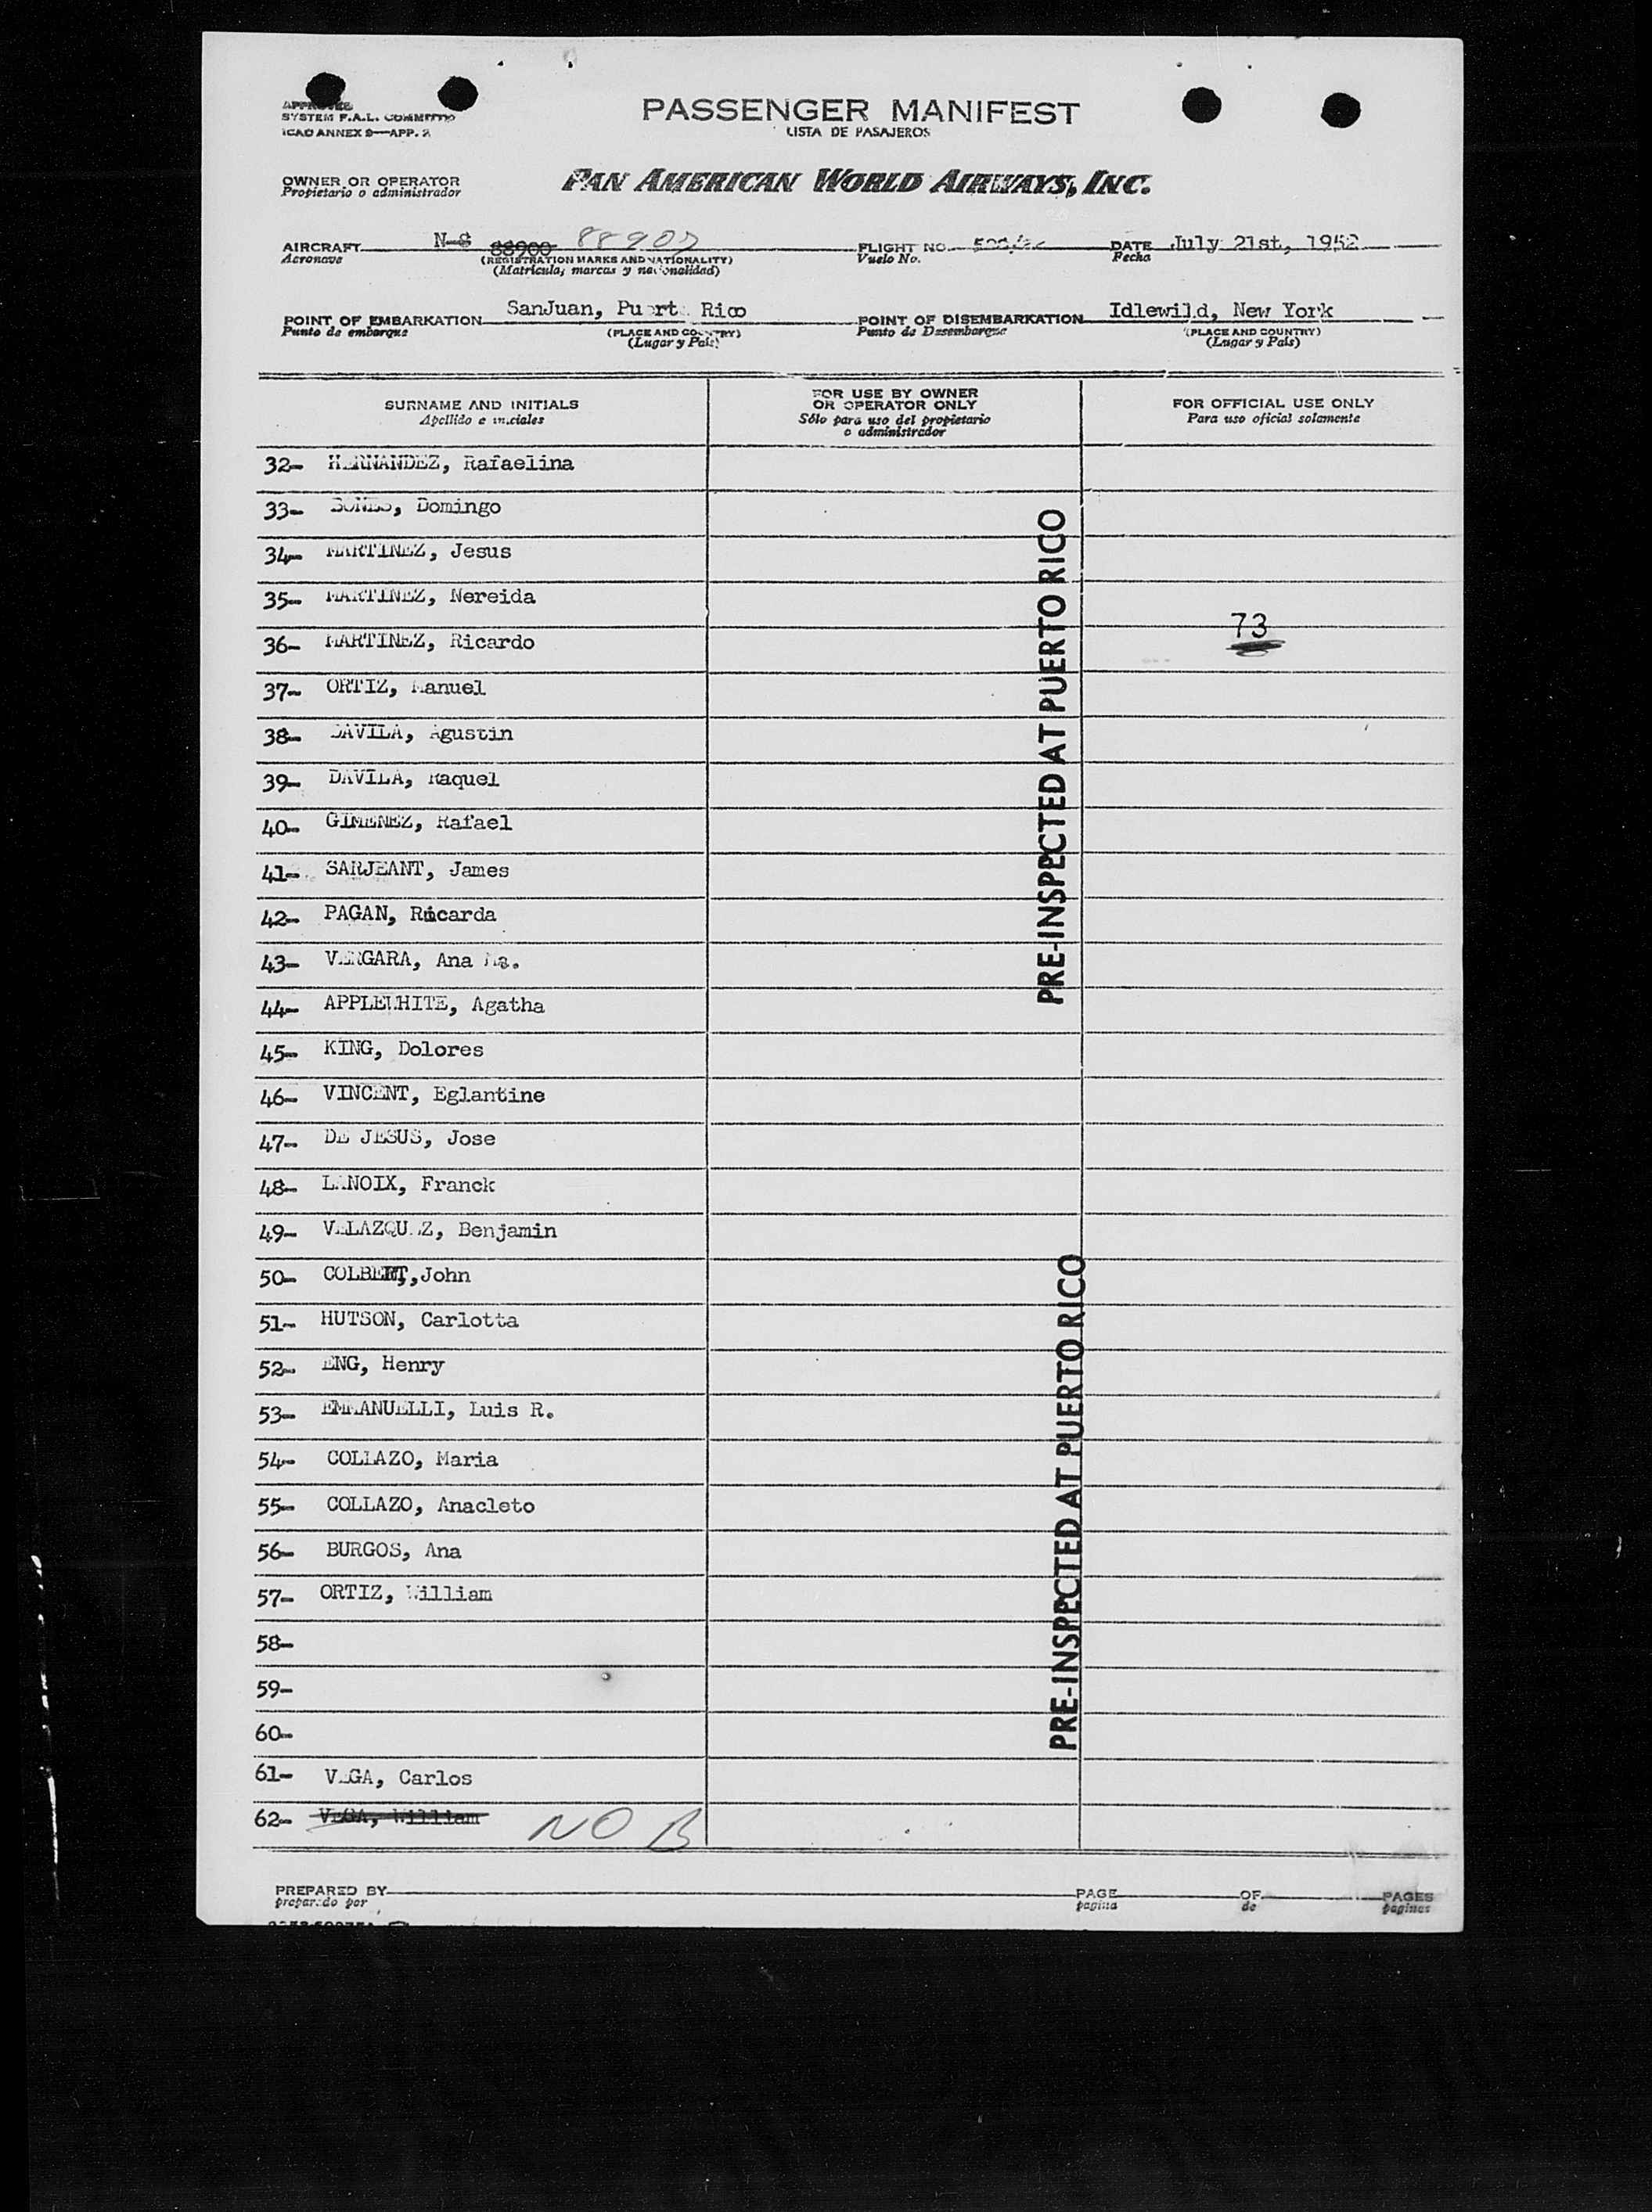 APPROVED
SYSTEM F.A.L. COMMITTEE
ICAO ANNEX 9—APP. 2
PASSENGER MANIFEST
LISTA DE PASAJEROS
OWNER OR OPERATOR
Propietario o administrador
PAN AMERICAN WORLD AIRWAYS, INC.
AIRCRAFT N-8 88900
Aeronave
(REGISTRATION MARKS AND NATIONALITY)
(Matrícula, marcas y nacionalidad)
FLIGHT NO.
Vuelo No.
DATE July 21st, 1952
Fecha
POINT OF EMBARKATION SanJuan, Puerto Rico
Punto de embarque
(PLACE AND COUNTRY)
(Lugar y País)
POINT OF DISEMBARKATION Idlewild, New York
Punto de Desembarque
(PLACE AND COUNTRY)
(Lugar y País)
SURNAME AND INITIALS
Apellido e iniciales
FOR USE BY OWNER
OR OPERATOR ONLY
Sólo para uso del propietario
o administrador
FOR OFFICIAL USE ONLY
Para uso oficial solamente
32- HERNANDEZ, Rafaelina
33- BONES, Domingo
34- MARTINEZ, Jesus
35- MARTINEZ, Nereida
36- MARTINEZ, Ricardo
73
37- ORTIZ, Manuel
38- DAVILA, Agustin
39- DAVILA, Raquel
40- GIMENEZ, Rafael
41- SARJEANT, James
42- PAGAN, Ricarda
43- VERGARA, Ana Ma.
44- APPLEWHITE, Agatha
45- KING, Dolores
46- VINCENT, Eglantine
47- DE JESUS, Jose
48- LANOIX, Franck
49- VELAZQUEZ, Benjamin
50- COLBERT, John
51- HUTSON, Carlotta
52- ENG, Henry
53- EMMANUELLI, Luis R.
54- COLLAZO, Maria
55- COLLAZO, Anacleto
56- BURGOS, Ana
57- ORTIZ, William
58-
59-
60-
61- VEGA, Carlos
62- VEGA, William NO B
PRE-INSPECTED AT PUERTO RICO
PRE-INSPECTED AT PUERTO RICO
PREPARED BY
preparado por
PAGE OF PAGES
pagina de paginas